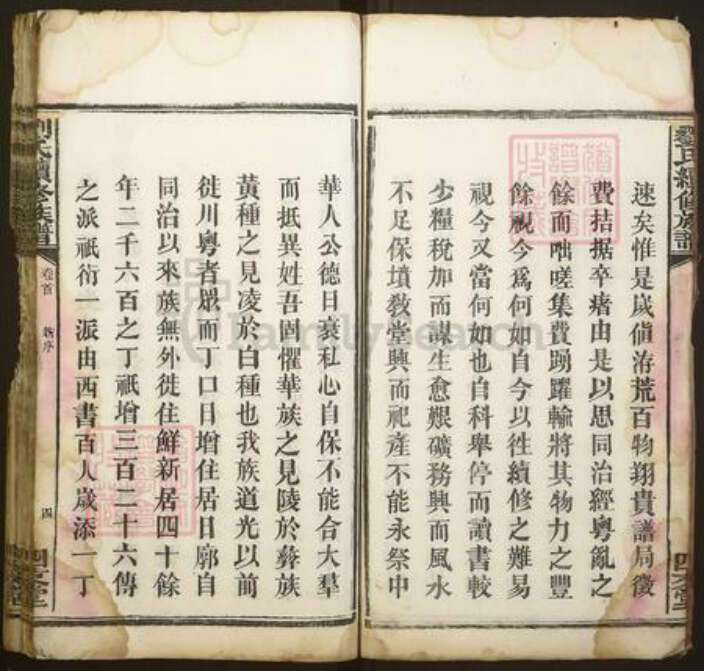 速矣惟是歲値洊荒百物翔貴譜局徵
費拮据卒瘏由是以思同治經粵亂之
餘而咄嗟集費踴躍輸將其物力之豐
餘視今爲何如自今以徃續修之難易
視今又當何如也自科舉停而讀書較
少糧稅加而謀生愈艱礦務興而風水
不足保墳敎堂興而祀產不能永祭中
華人公德日衰私心自保不能合大羣
而抵異姓吾固懼華族之見陵於彝族
黃種之見凌於白種也我族道光以前
徙川粵者衆而丁口日增住居日廓自
同治以來族無外徙住鮮新居四十餘
年二千六百之丁祇增三百二十六傳
之派祇衍一派由西書百人歲添一丁
劉氏續修族譜
卷首
新序
四
FamilySearch